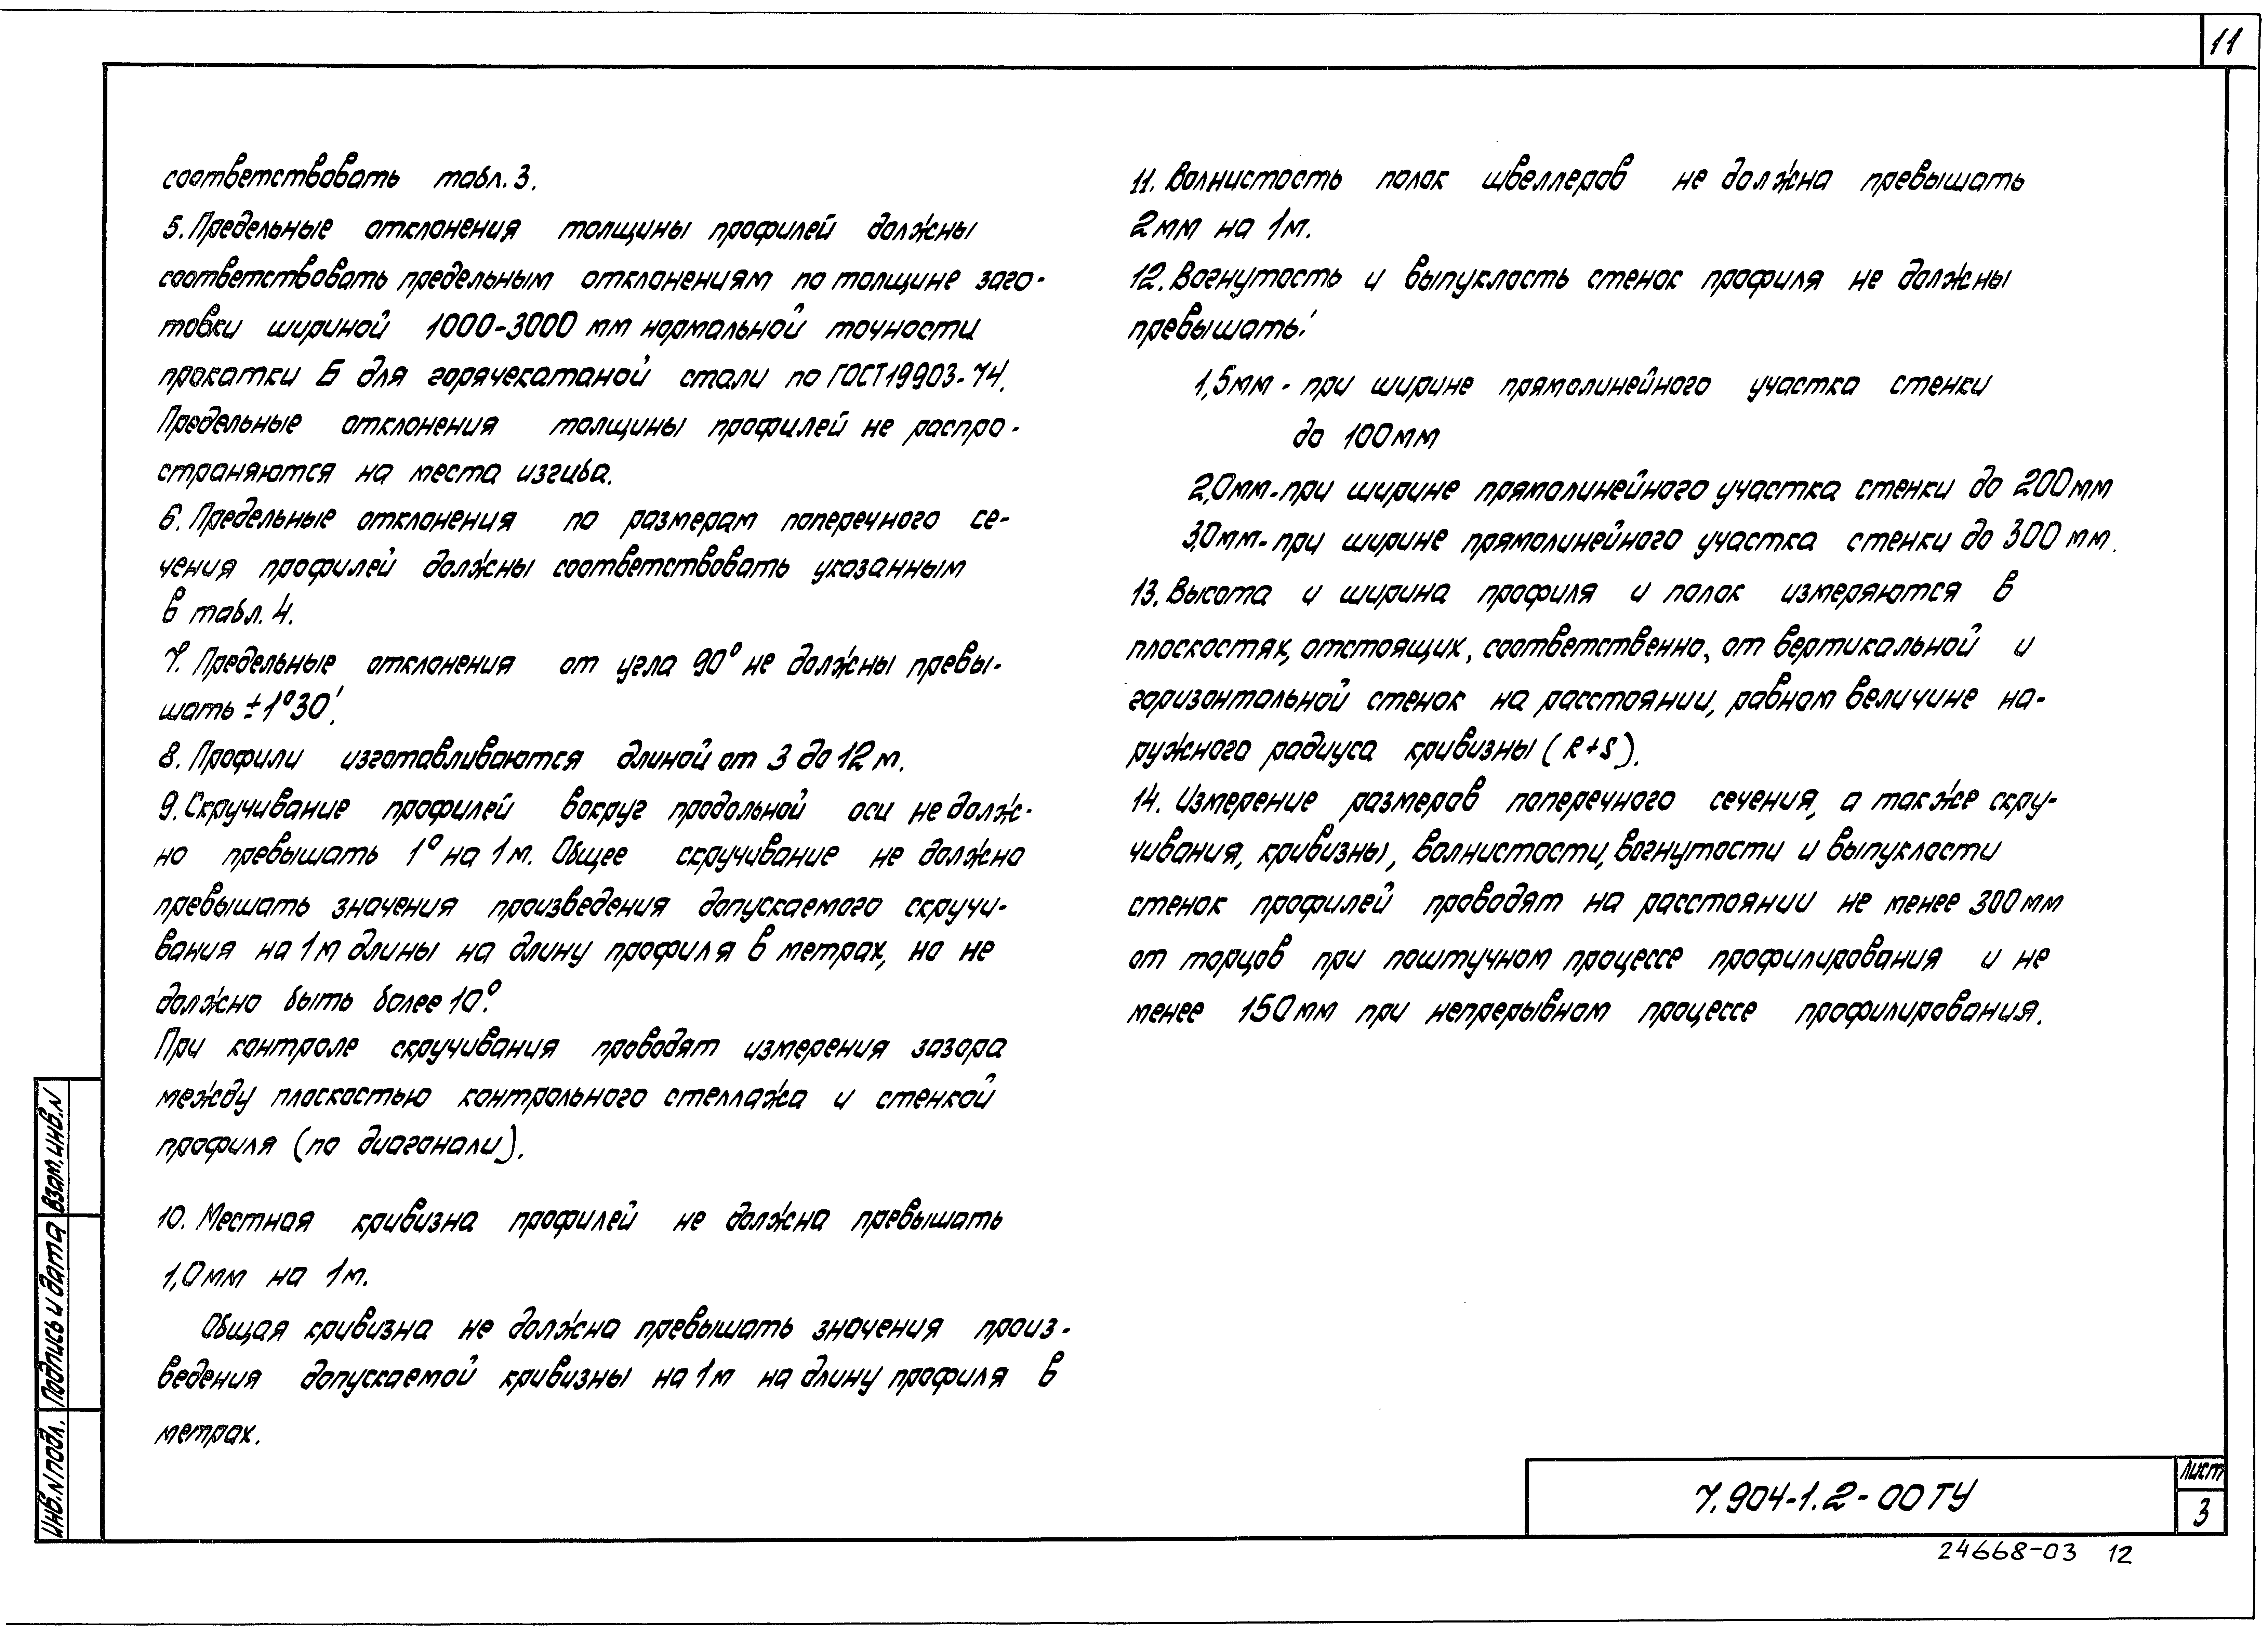 11
соответствовать табл. 3.
5. Предельные отклонения толщины профилей должны
соответствовать предельным отклонениям по толщине заго-
товки шириной 1000-3000 мм нормальной точности
прокатки Б для горячекатаной стали по ГОСТ 19903-74.
Предельные отклонения толщины профилей не распро-
страняются на места изгиба.
6. Предельные отклонения по размерам поперечного се-
чения профилей должны соответствовать указанным
в табл. 4.
7. Предельные отклонения от угла 90° не должны превы-
шать ±1°30'.
8. Профили изготавливаются длиной от 3 до 12 м.
9. Скручивание профилей вокруг продольной оси не долж-
но превышать 1° на 1 м. Общее скручивание не должно
превышать значения произведения допускаемого скручи-
вания на 1 м длины на длину профиля в метрах, но не
должно быть более 10°.
При контроле скручивания проводят измерения зазора
между плоскостью контрольного стеллажа и стенкой
профиля (по диагонали).
10. Местная кривизна профилей не должна превышать
1,0 мм на 1 м.
Общая кривизна не должна превышать значения произ-
ведения допускаемой кривизны на 1 м на длину профиля в
метрах.
11. Волнистость полок швеллеров не должна превышать
2 мм на 1 м.
12. Вогнутость и выпуклость стенок профиля не должны
превышать:
1,5 мм - при ширине прямолинейного участка стенки
до 100 мм
2,0 мм - при ширине прямолинейного участка стенки до 200 мм
3,0 мм - при ширине прямолинейного участка стенки до 300 мм.
13. Высота и ширина профиля и полок измеряются в
плоскостях, отстоящих, соответственно, от вертикальной и
горизонтальной стенок на расстоянии, равном величине на-
ружного радиуса кривизны (R+S).
14. Измерение размеров поперечного сечения, а также скру-
чивания, кривизны, волнистости, вогнутости и выпукласти
стенок профилей проводят на расстоянии не менее 300 мм
от торцов при поштучном процессе профилирования и не
менее 150 мм при непрерывном процессе профилирования.
Инв. N подл. Подпись и дата Взам. инв. N
7.904-1.2-00 ТУ
Лист
3
24668-03 12